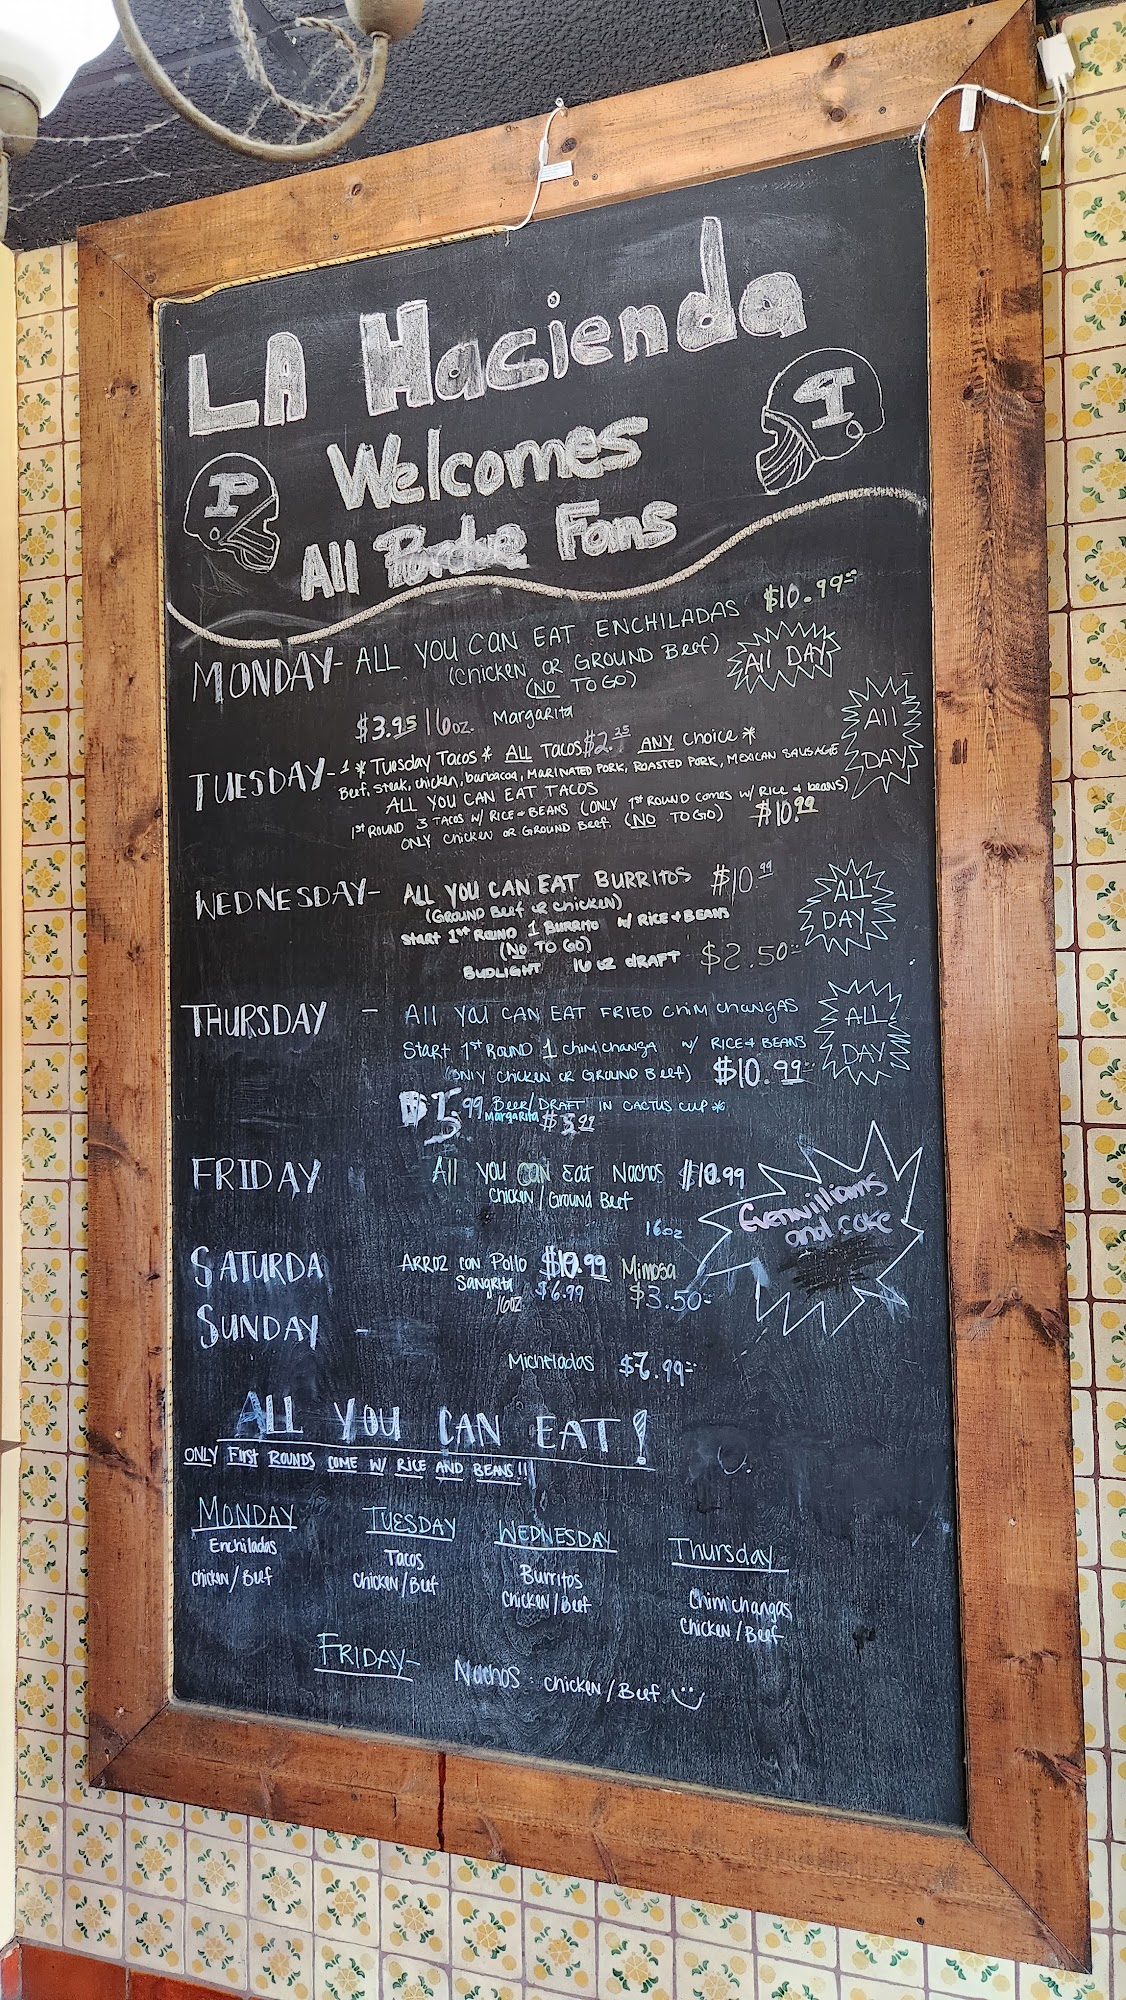 LA Hacienda
Welcomes
All Purdue Fans
P
P
MONDAY- ALL YOU CAN EAT ENCHILADAS $10.99
(Chicken OR GROUND Beef)
(NO TO GO)
All DAY
$3.95 16oz. Margarita
TUESDAY- * Tuesday Tacos * ALL Tacos $2.25 ANY Choice *
Beef, Steak, chicken, barbacoa, MARINATED PORK, ROASTED PORK, MEXICAN SAUSAGE
All
DAY
ALL YOU CAN EAT TACOS
1st ROUND 3 TACOS W/ RICE + BEANS (ONLY 1st ROUND comes w/ RICE & beans)
ONLY Chicken or GROUND Beef. (NO TO GO) $10.99
WEDNESDAY- ALL YOU CAN EAT BURRITOS $10.99
(GROUND Beef or chicken)
Start 1st ROUND 1 BURRITO w/ RICE + BEANS
(No TO GO)
BUDLIGHT 16 oz dRAFT $2.50
ALL
DAY
THURSDAY - All You CAN EAT FRIED Chim changas
Start 1st ROUND 1 chim changa w/ RICE & BEANS
(ONLY Chicken or GROUND Beef) $10.99
ALL
DAY
Beer/DRAFT IN CACTUS CUP
Margarita
FRIDAY All You CAN Eat Nachos $10.99
Chicken/Ground Beef
Evanwilliams
and coke
16oz
SATURDA ARROZ con Pollo $10.99 Mimosa
Sangrita $6.99 $3.50
16oz
SUNDAY -
Micheladas
ALL YOU CAN EAT!
ONLY First ROUNDS COME W/ RICE AND BEANS!!
MONDAY
Enchiladas
chicken/Beef
TUESDAY
Tacos
chicken/Beef
WEDNESDAY
Burritos
Chicken/Beef
Thursday
Chimchangas
Chicken/Beef
FRIDAY- Nachos: chicken/Beef